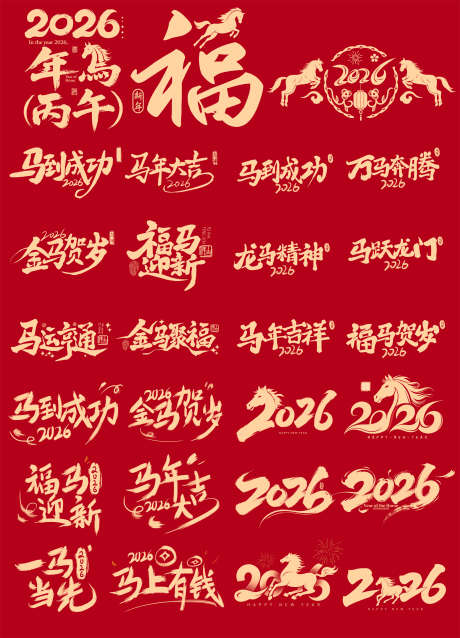 2026
In the year 2026,
年馬
(丙午)
福
新年
2026
马到成功
2026
马年大吉
2026
马到成功
2026
万马奔腾
2026
2026
金马贺岁
福马
迎新
龙马精神
2026
马跃龙门
2026
马运亨通
金马聚福
马年吉祥
2026
福马贺岁
2026
马到成功
2026
2026
金马贺岁
2026
HAPPY NEW YEAR
2026
HAPPY NEW YEAR
福马
2026
迎新
马年
2026
大吉
2026
2026
Year of the Horse
一马
2026
当先
2026
马上有钱
2026
HAPPY NEW YEAR
2026
HAPPY NEW YEAR